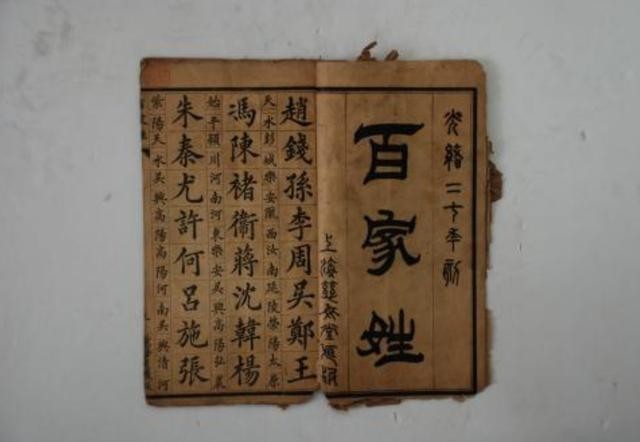 光緒二年
百家姓
上海堂
趙錢孫李周吳鄭王
天水彭城樂安隴西汝南延陵滎陽太原
馮陳褚衛蔣沈韓楊
始平潁川河南河東樂安吳興高陽弘農
朱秦尤許何呂施張
紫陽天水吳興高陽高陽河南吳興清河